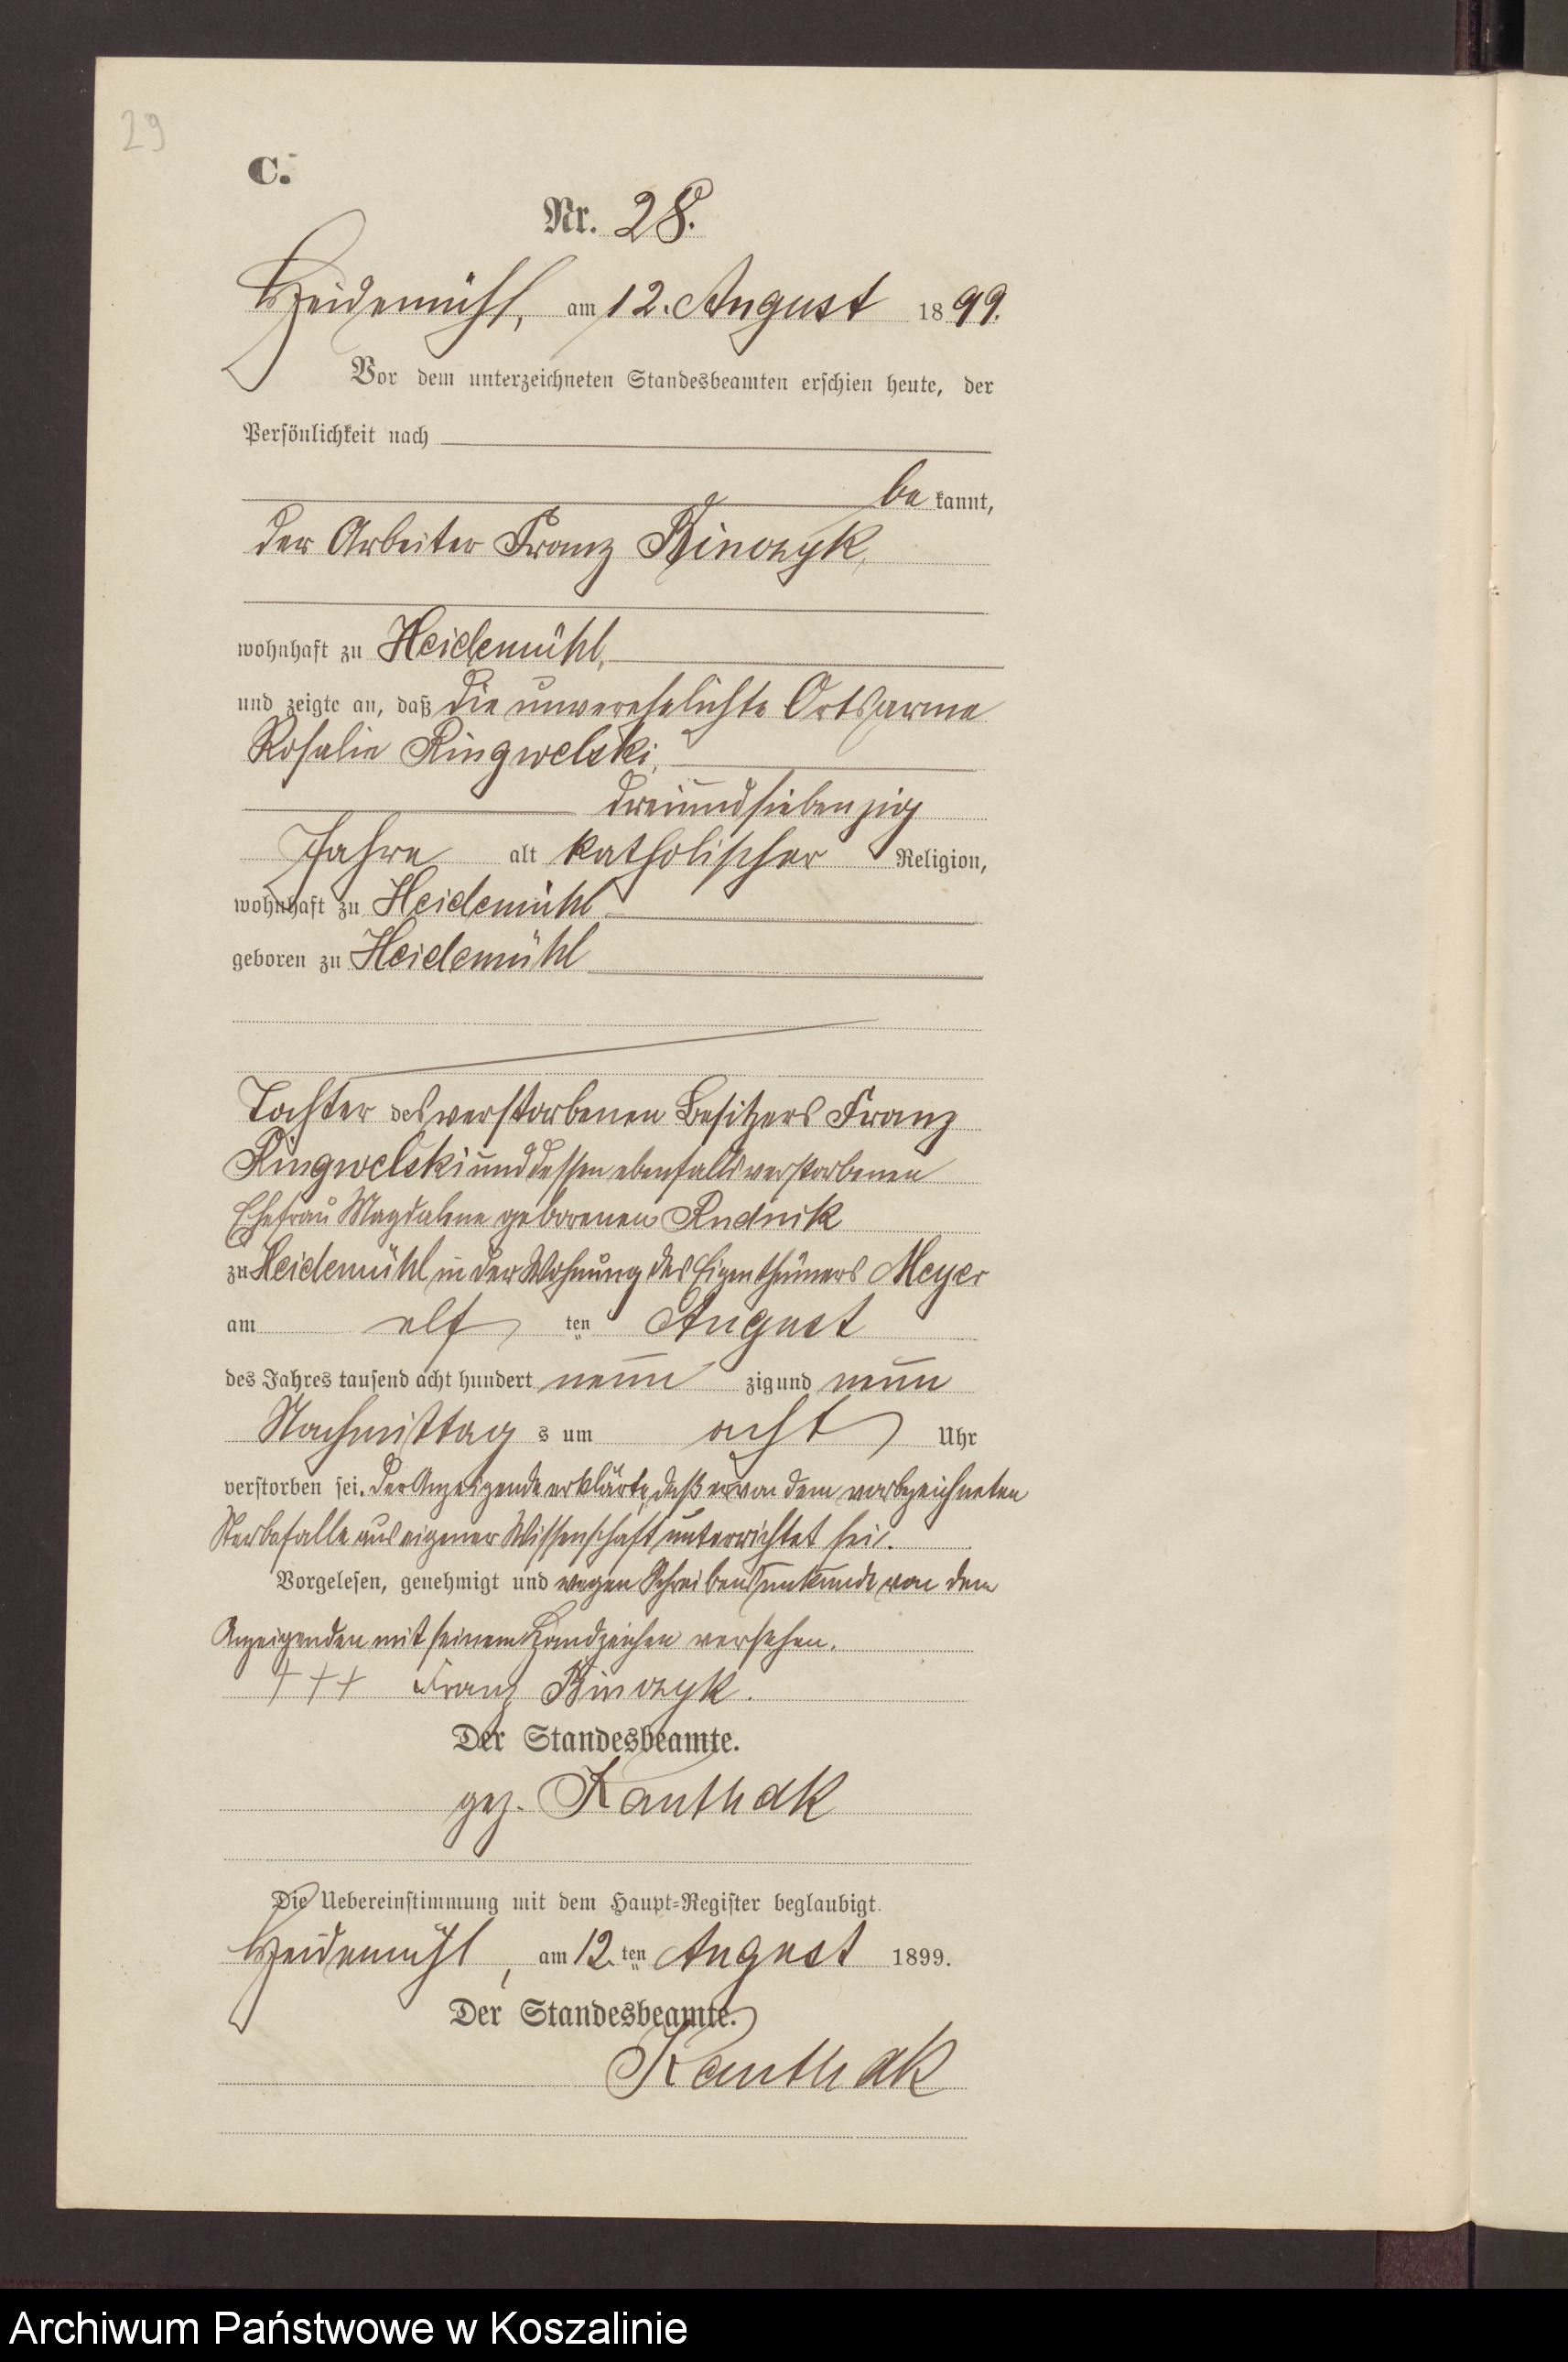 29
C.
Nr. 28.
Heidemühl, am 12. August 1899.
Vor dem unterzeichneten Standesbeamten erschien heute, der
Persönlichkeit nach
be kannt,
der Arbeiter Franz Binczyk,
wohnhaft zu Heidemühl,
und zeigte an, daß die unverehelichte Ortsarme
Rosalie Ringwelski,
dreiundsiebenzig
Jahre alt katholischer Religion,
wohnhaft zu Heidemühl
geboren zu Heidemühl
Tochter des verstorbenen Besitzers Franz
Ringwelski und dessen ebenfalls verstorbenen
Ehefrau Magdalene geborenen Rudnik
zu Heidemühl, in der Wohnung des Eigenthümers Meyer
am elf ten August
des Jahres tausend acht hundert neun zig und neun
Nachmittag s um acht Uhr
verstorben sei. Der Anzeigende erklärte, daß er von dem vorbezeichneten
Sterbefalle aus eigener Wissenschaft unterrichtet sei.
Vorgelesen, genehmigt und wegen Schreibensunkunde von dem
Anzeigenden mit seinem Handzeichen versehen.
+++ Franz Binczyk.
Der Standesbeamte.
gez. Kanthak
Die Uebereinstimmung mit dem Haupt-Register beglaubigt.
Heidemühl, am 12. ten August 1899.
Der Standesbeamte.
Kanthak
Archiwum Państwowe w Koszalinie